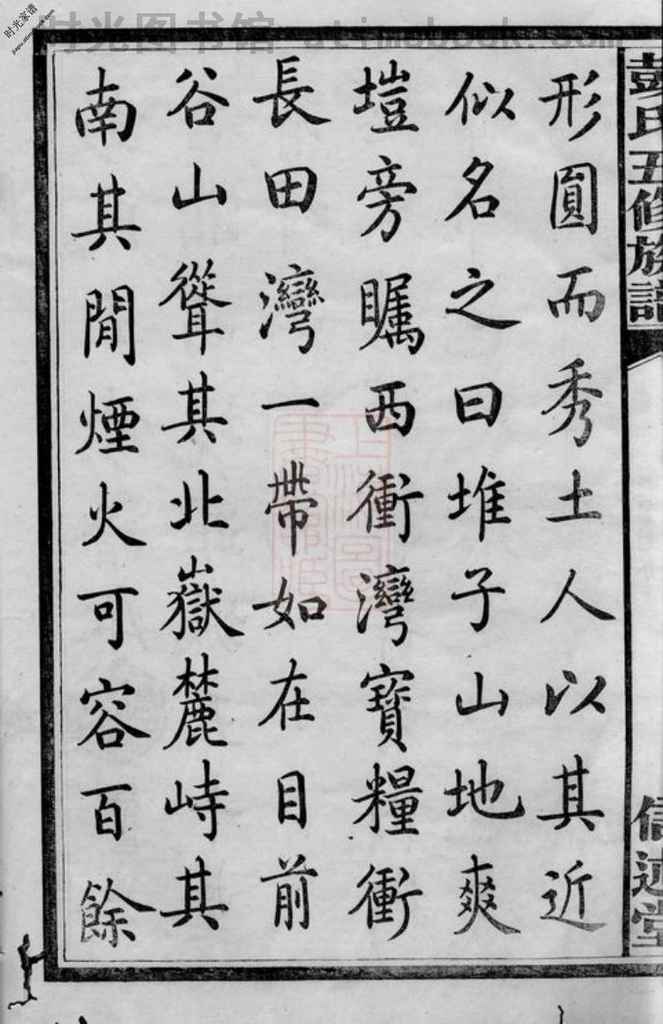 形圓而秀土人以其近
似名之曰堆子山地爽
塏旁矚西衝灣寶糧衝
長田灣一帶如在目前
谷山聳其北嶽麓峙其
南其閒煙火可容百餘
彭氏五修族譜
信述堂
时光图书馆 - atimebook.com
时光家谱